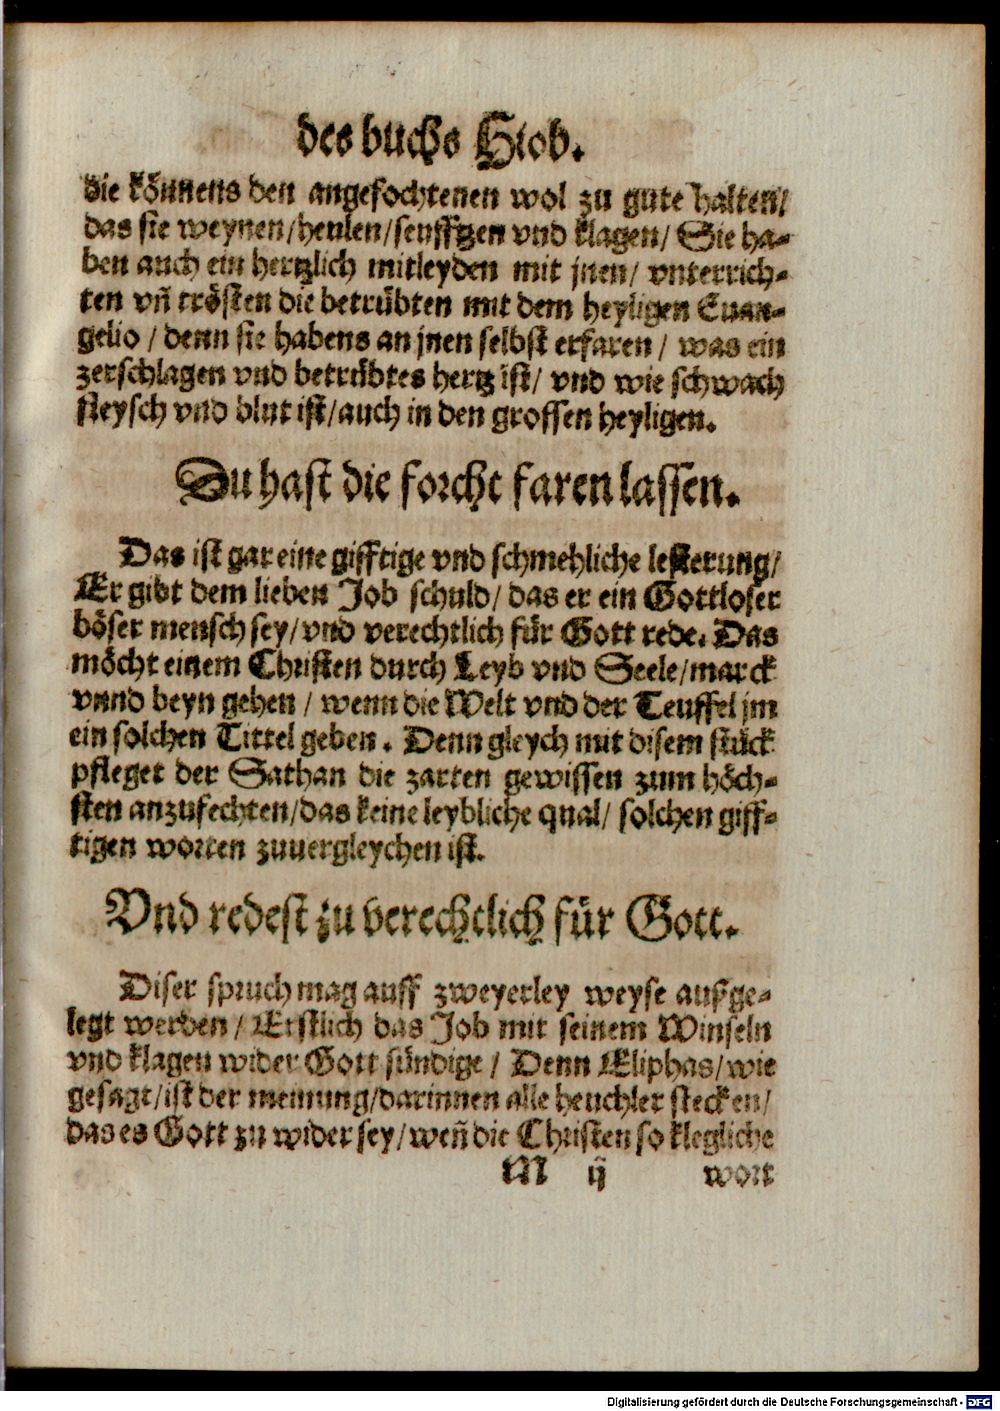 des buchs Hiob.
die könnens den angefochtenen wol zu gute halten/
das sie weynen/heulen/seufftzen vnd klagen/ Sie ha-
ben auch ein hertzlich mitleyden mit jnen/ vnterrich-
ten vñ trösten die betrübten mit dem heyligen Euan-
gelio / denn sie habens an jnen selbst erfaren / was ein
zerschlagen vnd betrübtes hertz ist/ vnd wie schwach
fleysch vnd blut ist/auch in den grossen heyligen.
Du hast die forcht faren lassen.
Das ist gar eine gifftige vnd schmehliche lesterung/
Er gibt dem lieben Job schuld/ das er ein Gottloser
böser mensch sey/vnd verechtlich für Gott rede. Das
möcht einem Christen durch Leyb vnd Seele/marck
vnnd beyn gehen / wenn die Welt vnd der Teuffel jm
ein solchen Tittel geben. Denn gleych mit disem stück
pfleget der Sathan die zarten gewissen zum höch-
sten anzufechten/das keine leybliche qual/ solchen giff-
tigen worten zuuergleychen ist.
Vnd redest zu verechtlich für Gott.
Diser spruch mag auff zweyerley weyse außge-
legt werden / Erstlich das Job mit seinem Winseln
vnd klagen wider Gott sündige / Denn Eliphas/wie
gesagt/ist der meinung/darinnen alle heuchler stecken/
das es Gott zu wider sey/weñ die Christen so klegliche
M ij wort
Digitalisierung gefördert durch die Deutsche Forschungsgemeinschaft - DFG